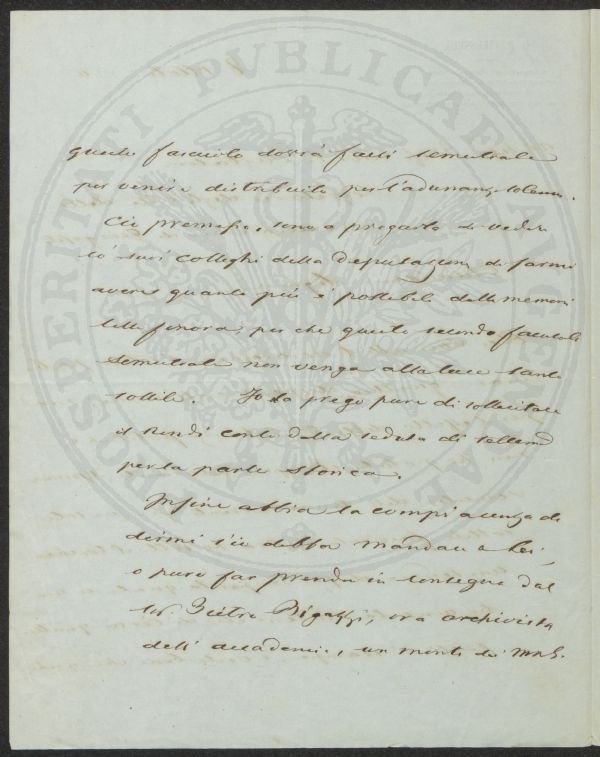 PROSPERITATI PVBLICAE AVGENDAE
questo fascicolo dovrà farsi semestrale
per venire distribuito per l'adunanza solenne.
Ciò premesso, sono a pregarla di vedere
co' suoi colleghi della Deputazione di farmi
avere quanto più è possibile delle memorie
lette finora, per che questo secondo fascicolo
semestrale non venga alla luce tanto
sottile. Io la prego pure di sollecitare
il Rendi conto della seduta di
per la parte storica.
Infine abbia la compiacenza di
dirmi s'io debba mandare a Lei,
o pure far prendere in consegna dal
Sr Pietro Bigazzi, ora archivista
dell' accademia, un monte di MnS.